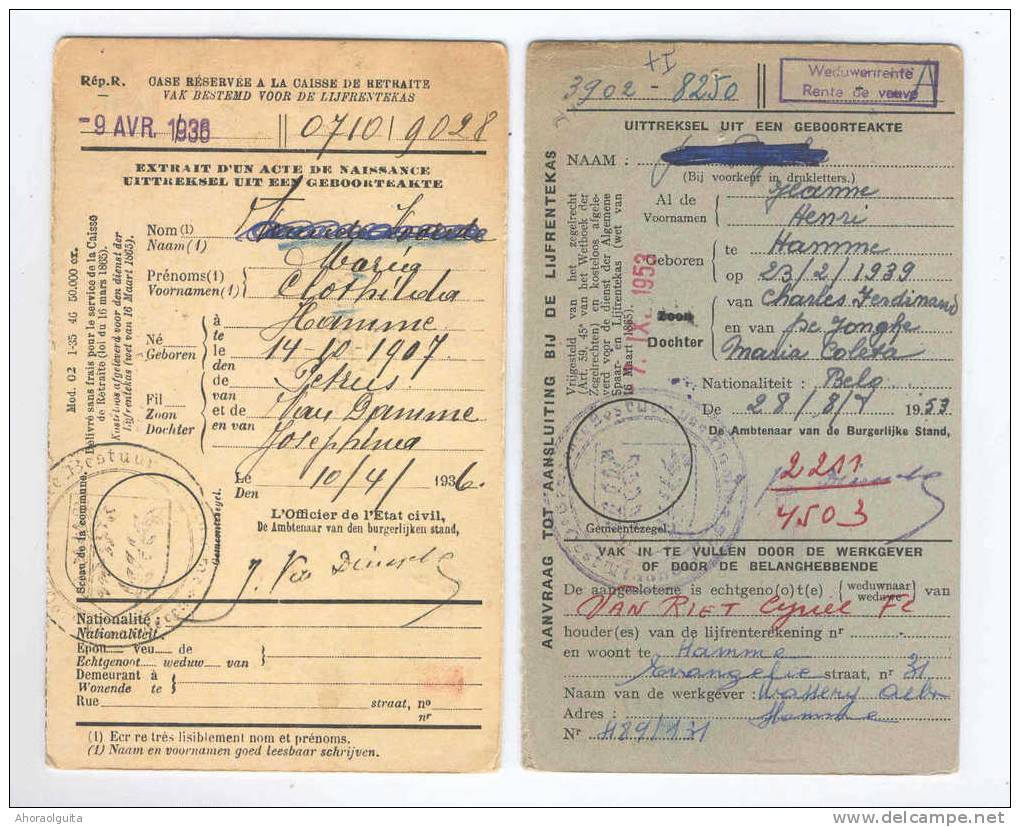 Rép.R. CASE RÉSERVÉE A LA CAISSE DE RETRAITE
VAK BESTEMD VOOR DE LIJFRENTEKAS
-9 AVR. 1936 071019028
EXTRAIT D'UN ACTE DE NAISSANCE
UITTREKSEL UIT EEN GEBOORTEAKTE
Nom (1)
Naam (1)
Prénoms(1) Maria
Voornamen(1) Clothilda
à Hamme
te
Né le 14-10-1907
Geboren den
de Petrus
van
Fil et de Van Damme
Zoon en van
Dochter Josephina
Le 10/4/ 1936.
Den
L'Officier de l'État civil,
De Ambtenaar van den burgerlijken stand,
Mod. C2 1-35 4G 50.000 ex.
Délivré sans frais pour le service de la Caisse
de Retraite (loi du 16 mars 1865).
Kosteloos afgeleverd voor den dienst der
Lijfrentekas (wet van 16 Maart 1865).
Sceau de la commune.
Gemeentezegel.
Nationalité :
Nationaliteit
Epou veu de
Echtgenoot weduw van
Demeurant à
Wonende te
Rue straat, no
nr
(1) Ecr re très lisiblement nom et prénoms.
(1) Naam en voornamen goed leesbaar schrijven.
+I
3902 - 8250
Weduwenrente
Rente de veuve
A
UITTREKSEL UIT EEN GEBOORTEAKTE
NAAM :
(Bij voorkeur in drukletters.)
Al de Jeanne
Voornamen Henri
te Hamme
Geboren
op 23/2/1939
Zoon van Charles Ferdinand
Dochter en van De Jonghe
Maria Coleta
Nationaliteit : Belg
De 28/8/ 1953
De Ambtenaar van de Burgerlijke Stand,
2211
4503
Vrijgesteld van het zegelrecht
(Art. 59, 45° van het Wetboek der
Zegelrechten) en kosteloos afgele-
verd voor de dienst der Algemene
Spaar- en Lijfrentekas (wet van
16 Maart 1865).
7. IX. 1953
Gemeentezegel.
AANVRAAG TOT AANSLUITING BIJ DE LIJFRENTEKAS
VAK IN TE VULLEN DOOR DE WERKGEVER
OF DOOR DE BELANGHEBBENDE
De aangeslotene is echtgeno(o)t(e) (weduwnaar weduwe) van
VAN RIET Cyriel
houder(es) van de lijfrenterekening nr
en woont te Hamme
Evangelie straat, nr 31
Naam van de werkgever :
Adres : Hamme
Nr 489/931
Ahoraolguita
www.delcampe.net